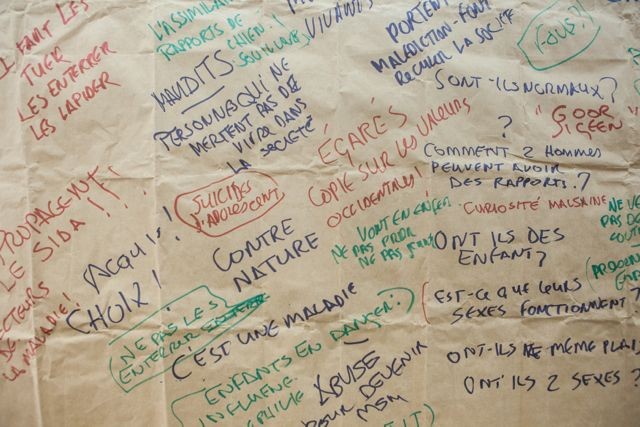 FAUT LES
TUER
LES ENTERRER
LES LAPIDER
L'ASSIMILA
RAPPORTS DE
CHIEN!
SOUILLURE
VIVANTS
PORTENT
MALEDICTION - FONT
RECULER LA SOCIÉTÉ
FOUS?!
MAUDITS
PERSONNES QUI NE
MERITENT PAS DE
VIVRE DANS
LA SOCIÉTÉ
SONT-ILS NORMAUX?
?
"GOOR
JIGÉEN"
ÉGARÉS
COPIÉ SUR LES VALEURS
OCCIDENTALES!
COMMENT 2 HOMMES
PEUVENT AVOIR
DES RAPPORTS?
CURIOSITÉ MALSAINE
SUICIDES
D'ADOLESCENT
PROPAGENT
LE SIDA!!!
ECTEURS
DE
LA MALADIE!
ACQUIS!
CHOIX!
CONTRE
NATURE
VONT EN ENFER
NE PAS PRIER
NE PAS
ONT ILS DES
ENFANT?
NE PAS LES
ENTERRER
C'EST UNE MALADIE
EST-CE QUE LEURS
SEXES FONCTIONNENT?
ENFANTS EN DANGER:
INFLUENCE
ABUSE
POUR DEVENIR
MSM
ONT-ILS LE MEME PLAI
ONT'ILS 2 SEXES?